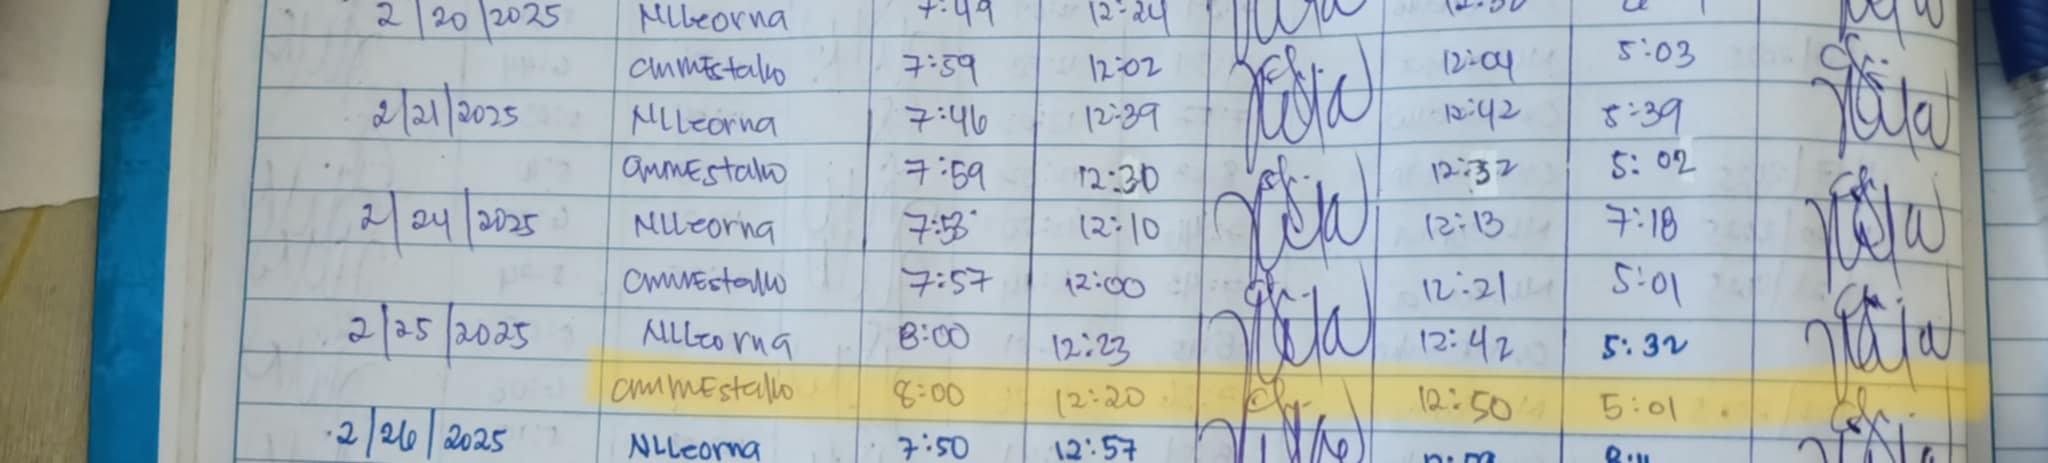 2/20/2025 NLLeorna 7:49 12:24
CMMEstallo 7:59 12:02 12:04 5:03
2/21/2025 NLLeorna 7:46 12:39 12:42 5:39
CMMEstallo 7:59 12:30 12:32 5:02
2/24/2025 NLLeorna 7:53 12:10 12:13 7:18
CMMEstallo 7:57 12:00 12:21 5:01
2/25/2025 NLLeorna 8:00 12:23 12:42 5:32
CMMEstallo 8:00 12:20 12:50 5:01
2/26/2025 NLLeorna 7:50 12:57